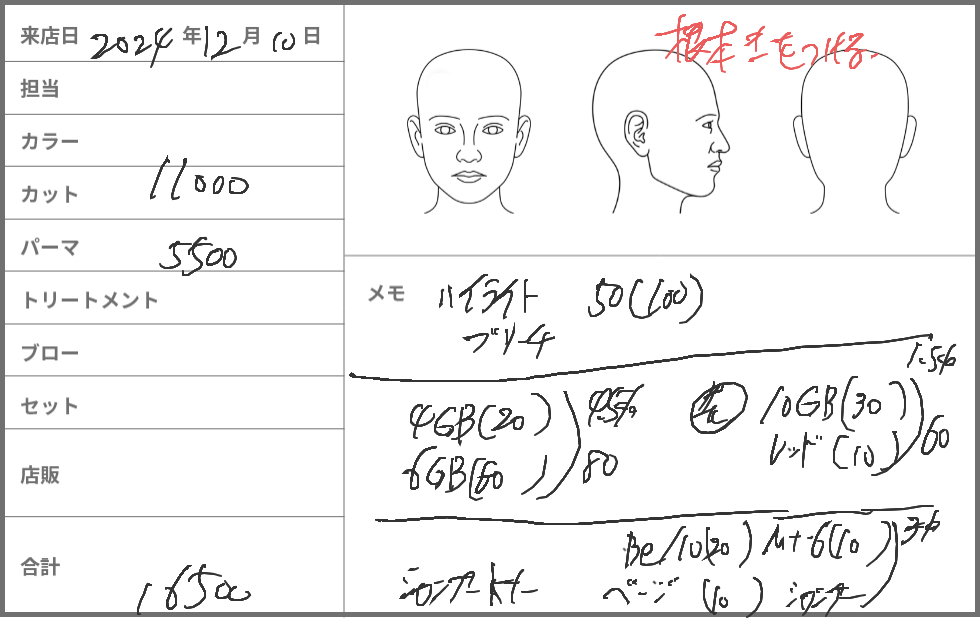 来店日 2024年12月10日
担当
カラー
カット 11000
パーマ 5500
トリートメント
ブロー
セット
店販
合計 16500
根本 をつける
メモ ハイライト 50(100)
ブリーチ
4GB(20) 4.5% 10GB(30) 1.5%
6GB(60) 80 レッド(10) 60
Be/10(20) Mt-6(10) 3%
シャンプー ベージ (10) シャンプー